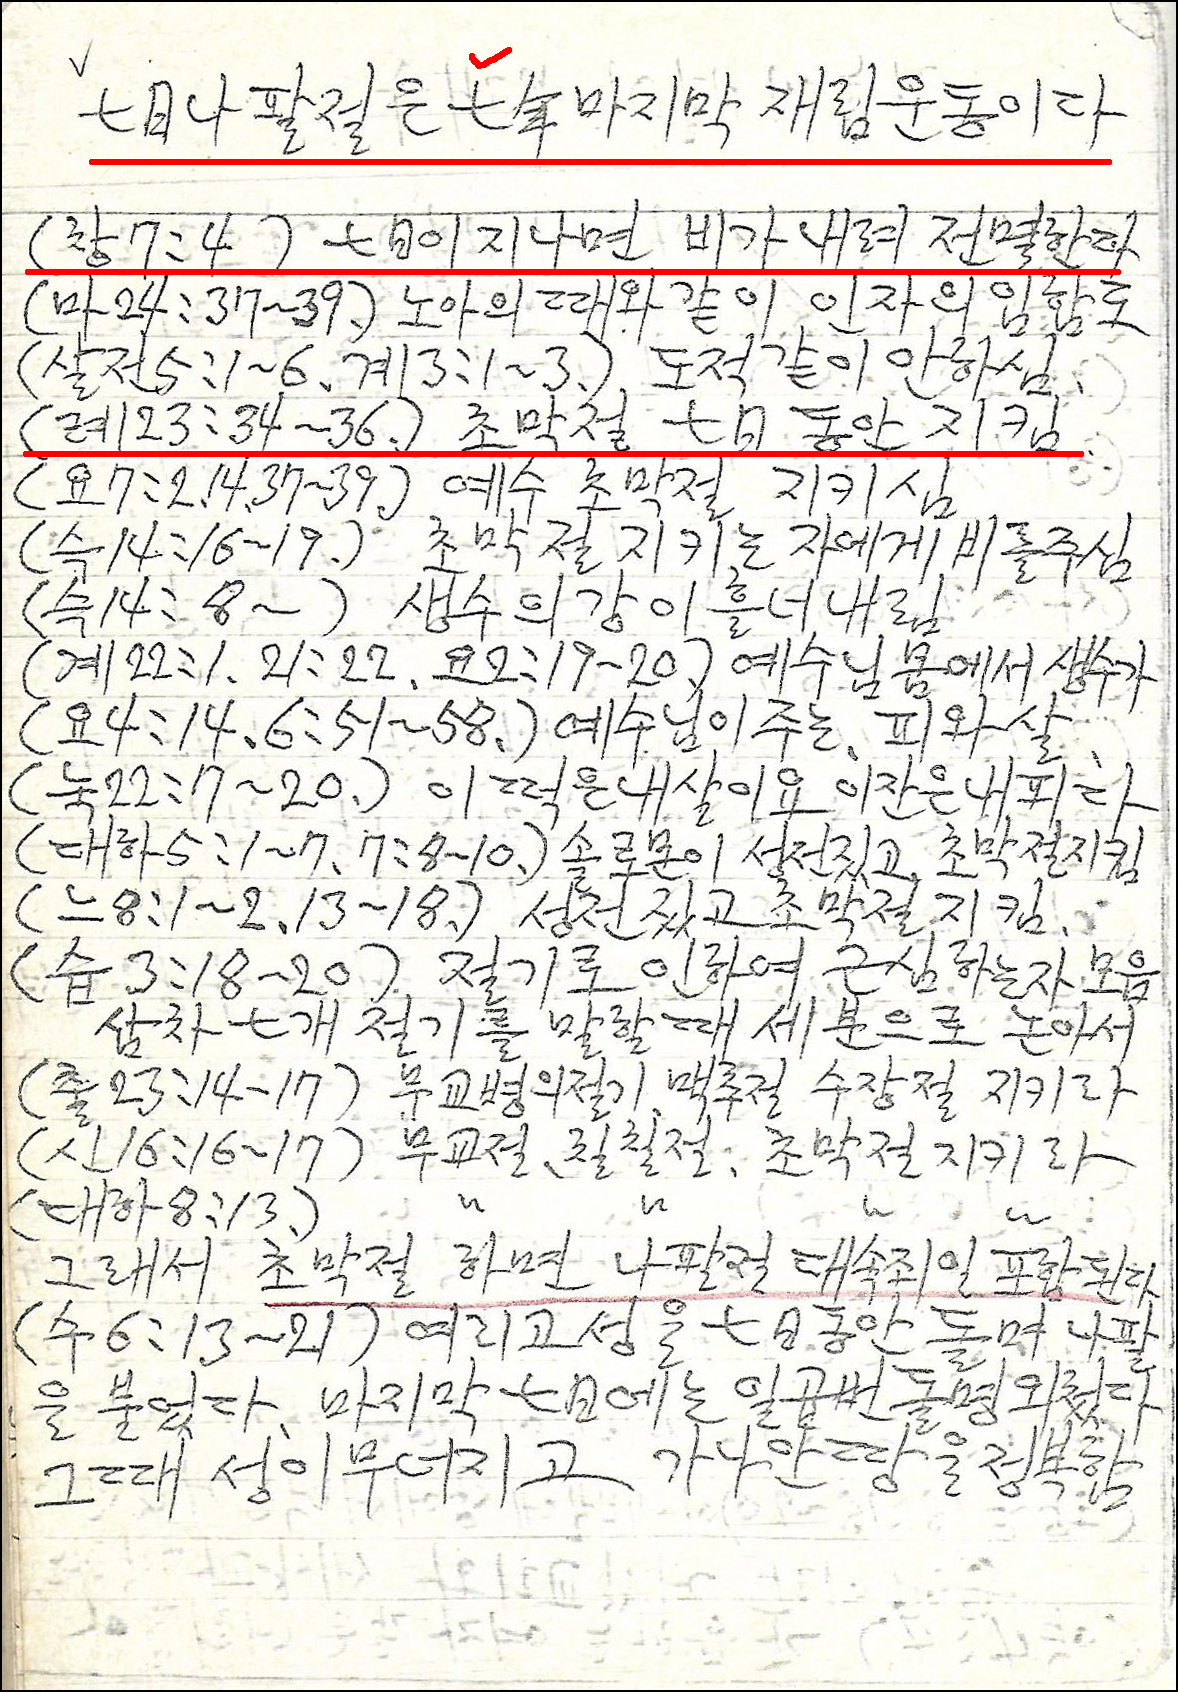 七日나팔절은 七年마지막 재림운동이다
(창7:4 ) 七日이 지나면 비가 내려 전멸한다
(마24:37~39.) 노아의 때와 같이 인자의 임함도
(살전5:1~6. 계3:1~3.) 도적같이 안하심.
(레23:34~36.) 초막절 七日 동안 지킴
(요7:2.14.37~39.) 예수 초막절 지키심
(슥14:16~19.) 초막절 지키는 자에게 비를주심
(슥14:8~ ) 생수의 강이 흘너내림
(계22:1. 21:22. 요2:19~20.) 예수님 몸에서 생수가
(요4:14. 6:51~58.) 예수님이 주는, 피와 살.
(눅22:7~20.) 이떡은내살이요 이잔은내피다
(대하5:1~7. 7:8~10.) 솔로몬이 성전짔고, 초막절지킴
(느8:1~2.13~18.) 성전짔고 초막절 지킴.
(습3:18~20) 절기로 인하여 근심하는자 모음
삼차 七개 절기를 말할때 세분으로 논아서
(출23:14~17) 무교병의절기, 맥추절 수장절 지키라
(신16:16~17) 무교절, 칠칠절, 초막절 지키라
(대하8:13.) 〃 〃 〃 〃
그래서 초막절 하면 나팔절 대속죄일 포함된다
(수6:13~21) 여리고성을 七日동안 돌며 나팔
을 불었다. 마지막 七日에는 일곱번돌명 외쳤다
그때 성이무너지고 가나안땅을정복함